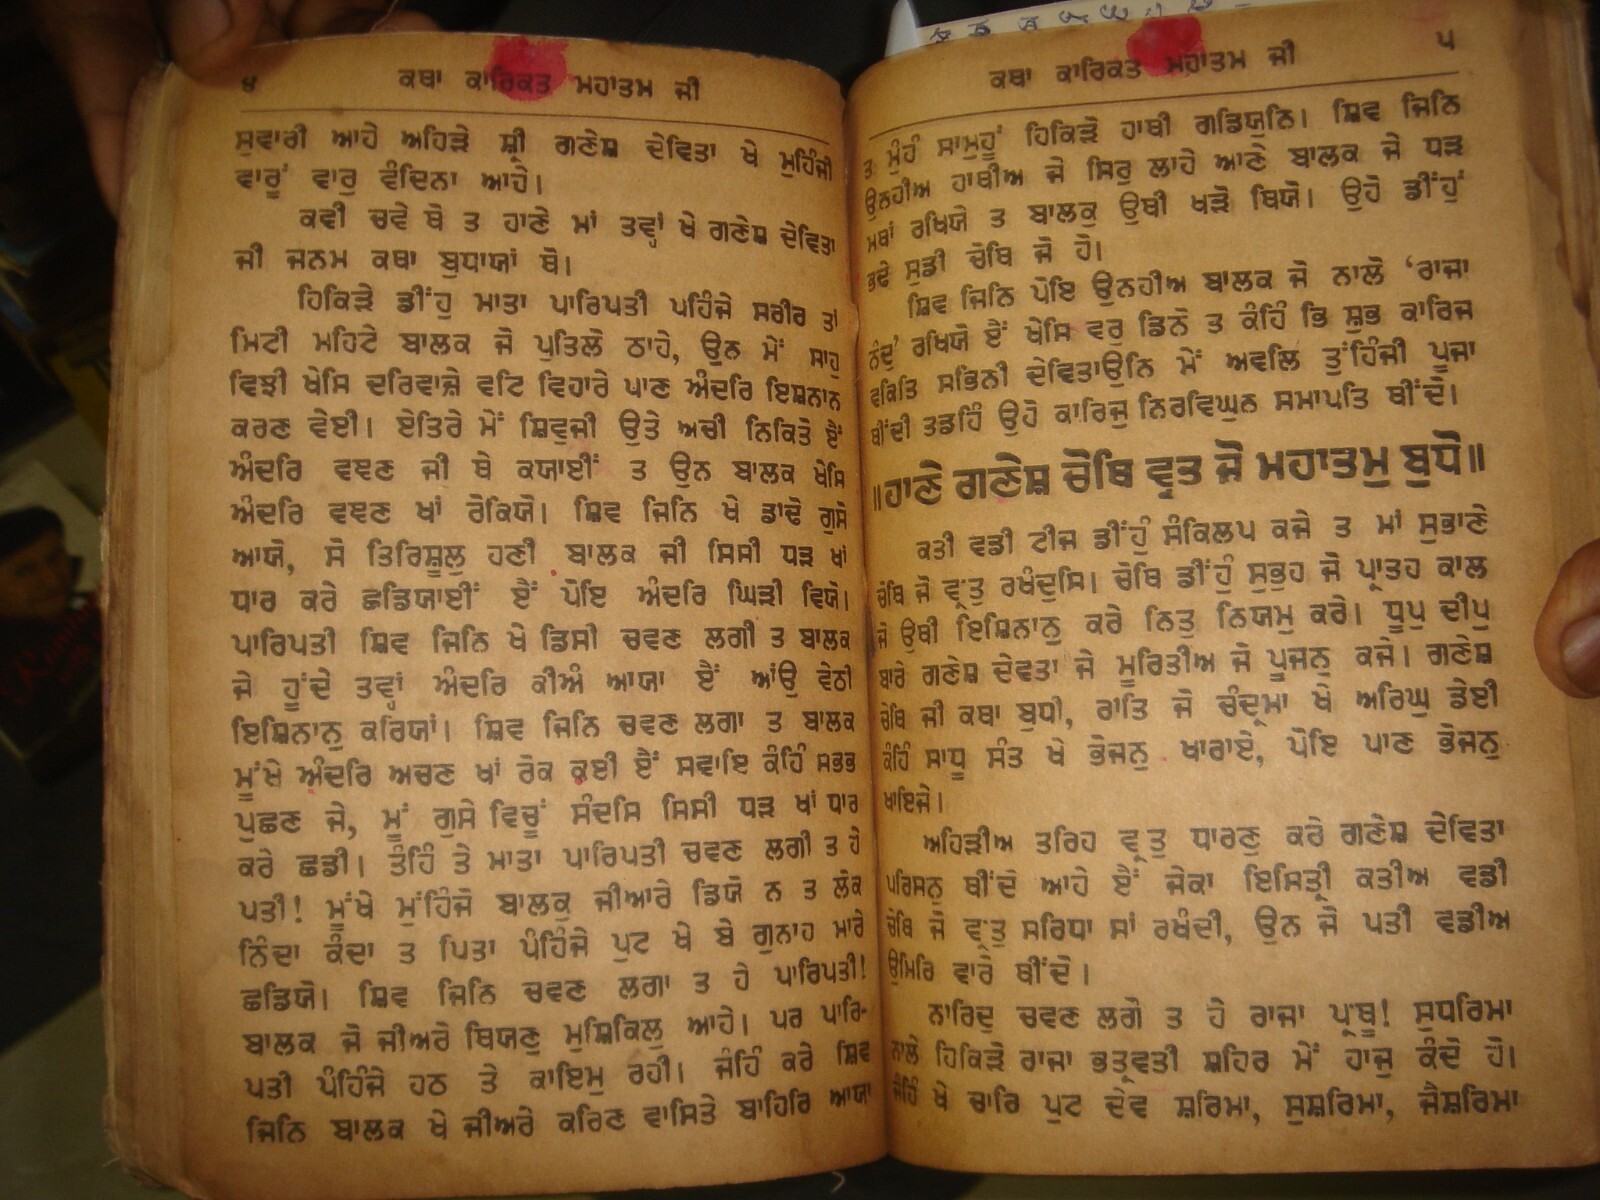 ੪ ਕਥਾ ਕਾਰਿਕਤ ਮਹਾਤਮ ਜੀ
ਸੁਵਾਰੀ ਆਹੇ ਅਹਿੜੇ ਸ਼੍ਰੀ ਗਣੇਸ਼ ਦੇਵਿਤਾ ਖੇ ਮੁਹਿੰਜੀ
ਵਾਰੂੰ ਵਾਰੁ ਵੰਦਿਨਾ ਆਹੇ।
ਕਵੀ ਚਵੇ ਥੋ ਤ ਹਾਣੇ ਮਾਂ ਤਵ੍ਹਾਂ ਖੇ ਗਣੇਸ਼ ਦੇਵਿਤਾ
ਜੀ ਜਨਮ ਕਥਾ ਬੁਧਾਯਾਂ ਥੋ।
ਹਿਕਿੜੇ ਡੀਂਹੁ ਮਾਤਾ ਪਾਰਿਪਤੀ ਪਹਿੰਜੇ ਸਰੀਰ ਤਾਂ
ਮਿਟੀ ਮਹਿਟੇ ਬਾਲਕ ਜੋ ਪੁਤਿਲੋ ਠਾਹੇ, ਉਨ ਮੇਂ ਸਾਹੁ
ਵਿਝੀ ਖੇਸਿ ਦਰਿਵਾਜ਼ੇ ਵਟਿ ਵਿਹਾਰੇ ਪਾਣ ਅੰਦਰਿ ਇਸ਼ਨਾਨ
ਕਰਣ ਵੇਈ। ਏਤਿਰੇ ਮੇਂ ਸ਼ਿਵੁਜੀ ਉਤੇ ਅਚੀ ਨਿਕਿਤੋ ਏਂ
ਅੰਦਰਿ ਵਞਣ ਜੀ ਥੇ ਕਯਾਈਂ ਤ ਉਨ ਬਾਲਕ ਖੇਸਿ
ਅੰਦਰਿ ਵਞਣ ਖਾਂ ਰੋਕਿਯੋ। ਸ਼ਿਵ ਜਿਨਿ ਖੇ ਡਾਢੋ ਗੁਸੋ
ਆਯੋ, ਸੋ ਤਿਰਿਸ਼ੂਲੁ ਹਣੀ ਬਾਲਕ ਜੀ ਸਿਸੀ ਧੜ ਖਾਂ
ਧਾਰ ਕਰੇ ਛਡਿਯਾਈਂ ਏਂ ਪੋਇ ਅੰਦਰਿ ਘਿੜੀ ਵਿਯੋ।
ਪਾਰਿਪਤੀ ਸ਼ਿਵ ਜਿਨਿ ਖੇ ਡਿਸੀ ਚਵਣ ਲਗੀ ਤ ਬਾਲਕ
ਜੇ ਹੂੰਦੇ ਤਵ੍ਹਾਂ ਅੰਦਰਿ ਕੀਅੰ ਆਯਾ ਏਂ ਆਂਉ ਵੇਠੀ
ਇਸ਼ਿਨਾਨੁ ਕਰਿਯਾਂ। ਸ਼ਿਵ ਜਿਨਿ ਚਵਣ ਲਗਾ ਤ ਬਾਲਕ
ਮੂੰਖੇ ਅੰਦਰਿ ਅਚਣ ਖਾਂ ਰੋਕ ਕਈ ਏਂ ਸਵਾਇ ਕੰਹਿੰ ਸਭਭ
ਪੁਛਣ ਜੇ, ਮੂੰ ਗੁਸੇ ਵਿਚੂੰ ਸੰਦਸਿ ਸਿਸੀ ਧੜ ਖਾਂ ਧਾਰ
ਕਰੇ ਛਡੀ। ਤੰਹਿੰ ਤੇ ਮਾਤਾ ਪਾਰਿਪਤੀ ਚਵਣ ਲਗੀ ਤ ਹੇ
ਪਤੀ! ਮੂੰਖੇ ਮੁੰਹਿੰਜੋ ਬਾਲਕੁ ਜੀਆਰੇ ਡਿਯੋ ਨ ਤ ਲੋਕ
ਨਿੰਦਾ ਕੰਦਾ ਤ ਪਿਤਾ ਪੰਹਿੰਜੇ ਪੁਟ ਖੇ ਬੇ ਗੁਨਾਹ ਮਾਰੇ
ਛਡਿਯੋ। ਸ਼ਿਵ ਜਿਨਿ ਚਵਣ ਲਗਾ ਤ ਹੇ ਪਾਰਿਪਤੀ!
ਬਾਲਕ ਜੋ ਜੀਅਰੋ ਥਿਯਣੁ ਮੁਸ਼ਿਕਿਲੁ ਆਹੇ। ਪਰ ਪਾਰਿ-
ਪਤੀ ਪੰਹਿੰਜੇ ਹਠ ਤੇ ਕਾਇਮੁ ਰਹੀ। ਜੰਹਿੰ ਕਰੇ ਸ਼ਿਵ
ਜਿਨਿ ਬਾਲਕ ਖੇ ਜੀਅਰੇ ਕਰਿਣ ਵਾਸਿਤੇ ਬਾਹਿਰਿ ਆਯਾ
ਕਥਾ ਕਾਰਿਕਤ ਮਹਾਤਮ ਜੀ ੫
ਤ ਮੁੰਹੰ ਸਾਮੁਹੂੰ ਹਿਕਿੜੋ ਹਾਥੀ ਗਡਿਯੁਨਿ। ਸ਼ਿਵ ਜਿਨਿ
ਉਨਹੀਅ ਹਾਥੀਅ ਜੋ ਸਿਰੁ ਲਾਹੇ ਆਣੇ ਬਾਲਕ ਜੇ ਧੜ
ਮਥਾਂ ਰਖਿਯੋ ਤ ਬਾਲਕੁ ਉਥੀ ਖੜੋ ਥਿਯੋ। ਉਹੋ ਡੀਂਹੁੰ
ਭਦੇ ਸੁਡੀ ਚੋਥਿ ਜੋ ਹੋ।
ਸ਼ਿਵ ਜਿਨਿ ਪੋਇ ਉਨਹੀਅ ਬਾਲਕ ਜੋ ਨਾਲੋ ‘ਰਾਜਾ
ਨੰਦੁ’ ਰਖਿਯੋ ਏਂ ਖੇਸਿ ਵਰੁ ਡਿਨੋ ਤ ਕੰਹਿੰ ਭਿ ਸ਼ੁਭ ਕਾਰਿਜ
ਵਕਿਤਿ ਸਭਿਨੀ ਦੇਵਿਤਾਉਨਿ ਮੇਂ ਅਵਲਿ ਤੁੰਹਿੰਜੀ ਪੂਜਾ
ਥੀਂਦੀ ਤਡਹਿੰ ਉਹੋ ਕਾਰਿਜੁ ਨਿਰਵਿਘੁਨ ਸਮਾਪਤਿ ਥੀਂਦੋ।
॥ਹਾਣੇ ਗਣੇਸ਼ ਚੋਥਿ ਵ੍ਰਤ ਜੋ ਮਹਾਤਮੁ ਬੁਧੋ॥
ਕਤੀ ਵਡੀ ਟੀਜ ਡੀਂਹੁੰ ਸੰਕਿਲਪ ਕਜੇ ਤ ਮਾਂ ਸੁਭਾਣੇ
ਚੋਥਿ ਜੋ ਵ੍ਰਤੁ ਰਖੰਦੁਸਿ। ਚੋਥਿ ਡੀਂਹੁੰ ਸੁਭੁਹ ਜੋ ਪ੍ਰਾਤਹ ਕਾਲ
ਜੋ ਉਥੀ ਇਸ਼ਿਨਾਨੁ ਕਰੇ ਨਿਤੁ ਨਿਯਮੁ ਕਰੇ। ਧੂਪੁ ਦੀਪੁ
ਬਾਰੇ ਗਣੇਸ਼ ਦੇਵਤਾ ਜੇ ਮੂਰਿਤੀਅ ਜੋ ਪੂਜਨੁ ਕਜੇ। ਗਣੇਸ਼
ਚੋਥਿ ਜੀ ਕਥਾ ਬੁਧੀ, ਰਾਤਿ ਜੋ ਚੰਦ੍ਰਮਾ ਖੇ ਅਰਿਘੁ ਡੇਈ
ਕੰਹਿੰ ਸਾਧੂ ਸੰਤ ਖੇ ਭੋਜਨੁ ਖਾਰਾਏ, ਪੋਇ ਪਾਣ ਭੋਜਨੁ
ਖਾਇਜੇ।
ਅਹਿੜੀਅ ਤਰਿਹ ਵ੍ਰਤੁ ਧਾਰਣੁ ਕਰੇ ਗਣੇਸ਼ ਦੇਵਿਤਾ
ਪਰਿਸਨੁ ਥੀਂਦੋ ਆਹੇ ਏਂ ਜੇਕਾ ਇਸਿਤ੍ਰੀ ਕਤੀਅ ਵਡੀ
ਚੋਥਿ ਜੋ ਵ੍ਰਤੁ ਸਰਿਧਾ ਸਾਂ ਰਖੰਦੀ, ਉਨ ਜੋ ਪਤੀ ਵਡੀਅ
ਉਮਿਰਿ ਵਾਰੋ ਥੀਂਦੋ।
ਨਾਰਿਦੁ ਚਵਣ ਲਗੋ ਤ ਹੇ ਰਾਜਾ ਪ੍ਰਥੂ! ਸੁਧਰਿਮਾ
ਨਾਲੇ ਹਿਕਿੜੋ ਰਾਜਾ ਭਤ੍ਰਵਤੀ ਸ਼ਹਿਰ ਮੇਂ ਹਾਜੁ ਕੰਦੋ ਹੋ।
ਜੰਹਿੰ ਖੇ ਚਾਰਿ ਪੁਟ ਦੇਵ ਸ਼ਰਿਮਾ, ਸੁਸ਼ਰਿਮਾ, ਜੈਸ਼ਰਿਮਾ